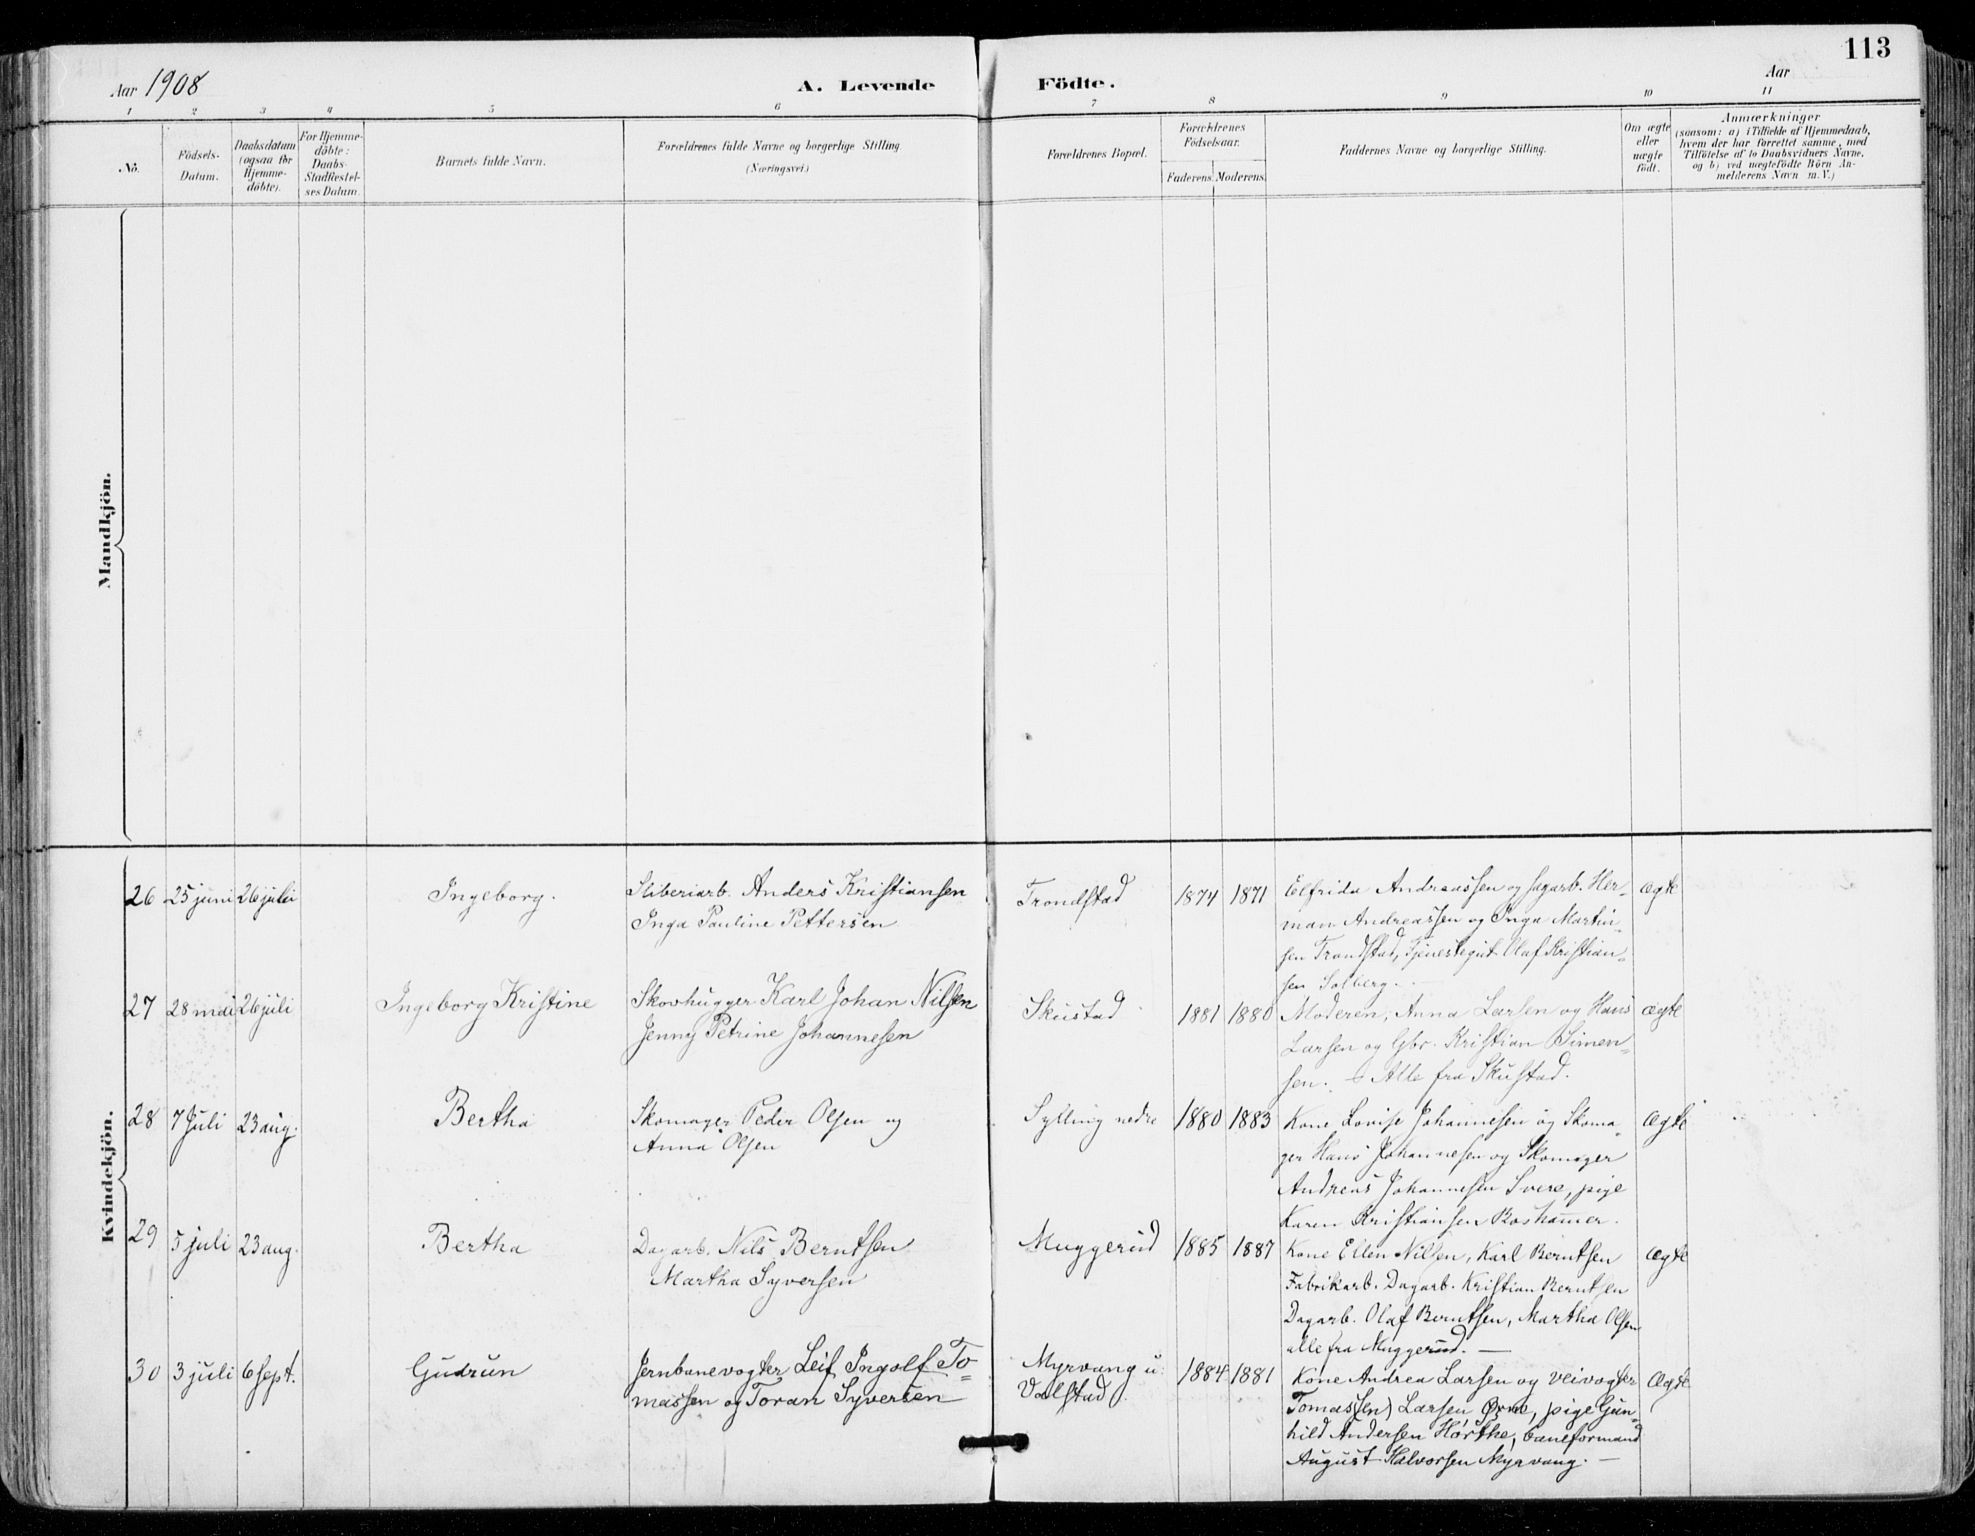 113
Aar 1908
A. Levende Födte.
Aar
1 2 3 4 5 6 7 8 9 10 11
No.
Födsels-
Datum.
Daabsdatum
(ogsaa for
Hjemme-
döbte).
For Hjemme-
döbte:
Daabs-
Stadfestel-
ses Datum.
Barnets fulde Navn.
Forældrenes fulde Navne og borgerlige Stilling
(Næringsvei.)
Forældrenes Bopæl.
Forældrenes
Födselsaar.
Faderens. Moderens.
Faddernes Navne og borgerlige Stilling.
Om ægte
eller
uægte
födt.
Anmærkninger
(saasom: a) i Tilfælde af Hjemmedaab,
hvem der har forrettet samme, med
Tilföielse af to Daabsvidners Navne,
og b) ved uegtefödte Börn An-
melderens Navn m. V.)
Mandkjön.
Kvindekjön.
26 25 juni 26 juli Ingeborg. Sliberiarb. Anders Kristiansen
Inga Pauline Pettersen
Trondstad 1874 1871
Elfrida Andreassen og sagarb. Her-
man Andreassen og Inga Martin-
sen Trondstad, Tjenestegut Olaf Kristian-
sen Solberg.
ægte
27 28 mai 26 juli Ingeborg Kristine Skovhugger Karl Johan Nilsen
Jenny Petrine Johannesen
Skustad 1881 1880
Moderen, Anna Larsen og Hans
Larsen og Gbr. Kristian Simen-
sen. Alle fra Skustad.
ægte
28 7 Juli 23 aug. Bertha Skomager Peder Olsen og
Anna Olsen
Sylling nedre 1880 1883
Kone Lovise Johannesen og Skoma-
ger Hans Johannesen og Skomager
Andreas Johannesen Svere, pige
Karen Kristiansen Boshamer.
Ægte
29 5 juli 23 aug. Bertha Dagarb. Nils Berntsen
Martha Syversen
Muggerud 1885 1887
Kone Ellen Nilsen, Karl Berntsen
Fabrikarb. Dagarb. Kristian Berntsen
Dagarb. Olaf Berntsen, Martha Olsen
alle fra Muggerud.
Ægte
30 3 juli 6 sept. Gudrun Jernbanevogter Leif Ingolf To=
massen og Toran Syversen
Myrvang u.
Valstad. 1884 1881
Kone Andrea Larsen og veivogter
Tomas(sen) Larsen Ørne, pige Gun-
hild Andersen Hørthe, baneformand
August Halvorsen Myrvang.
Ægte